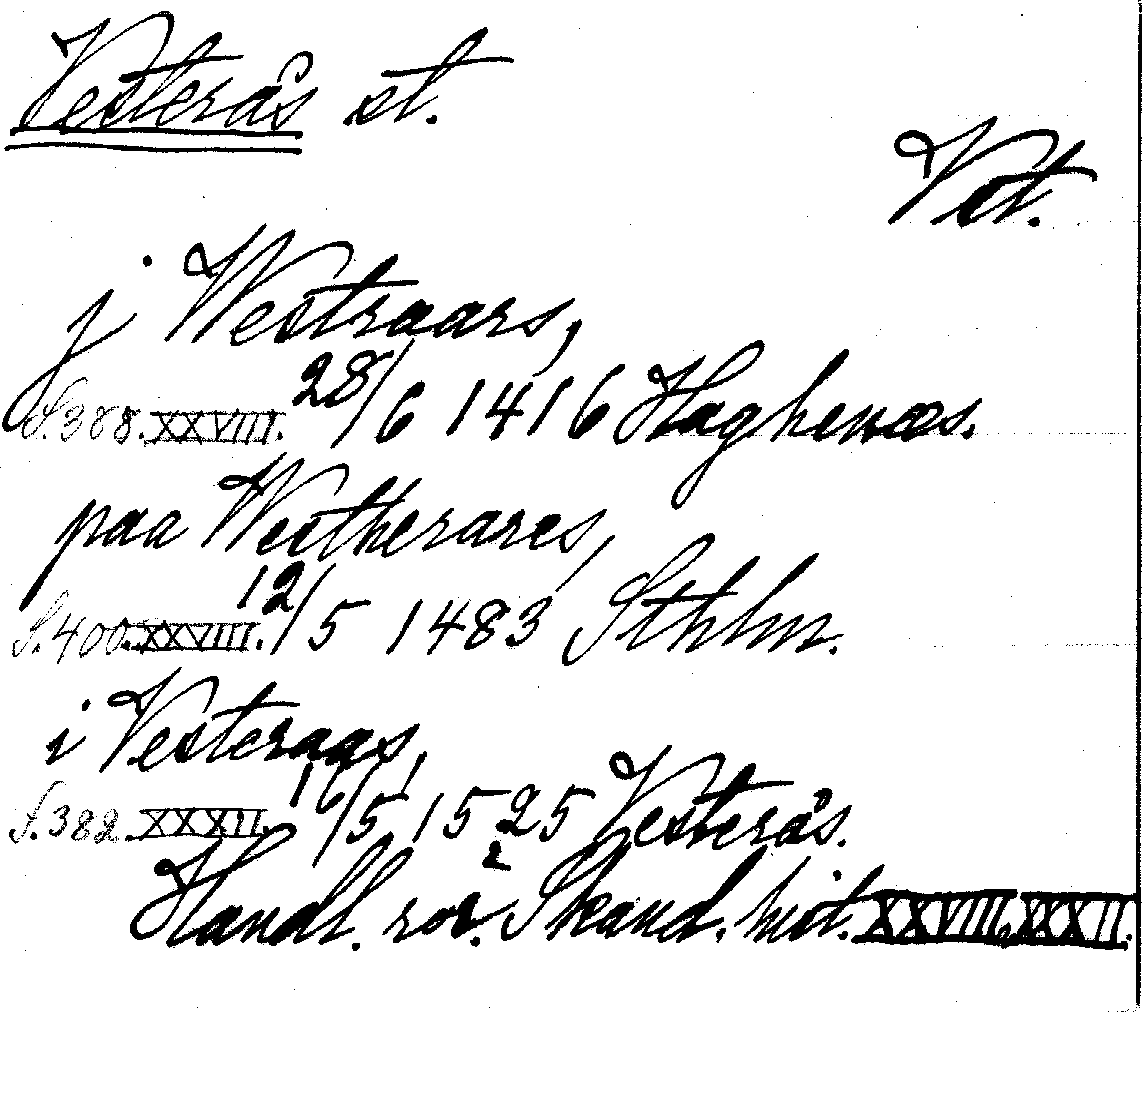 Vesterås st.
Vst.
j Westraars,
S. 388. XXVIII. 28/6 1416 Haghenæs.
paa Westherares,
S. 400. XXVIII. 12/5 1483 Sthlm.
i Vesteraas,
S. 382 XXXII. 16/5 1525 Vesterås.
Handl. rör. Skand. hist. XXVIII, XXXII.